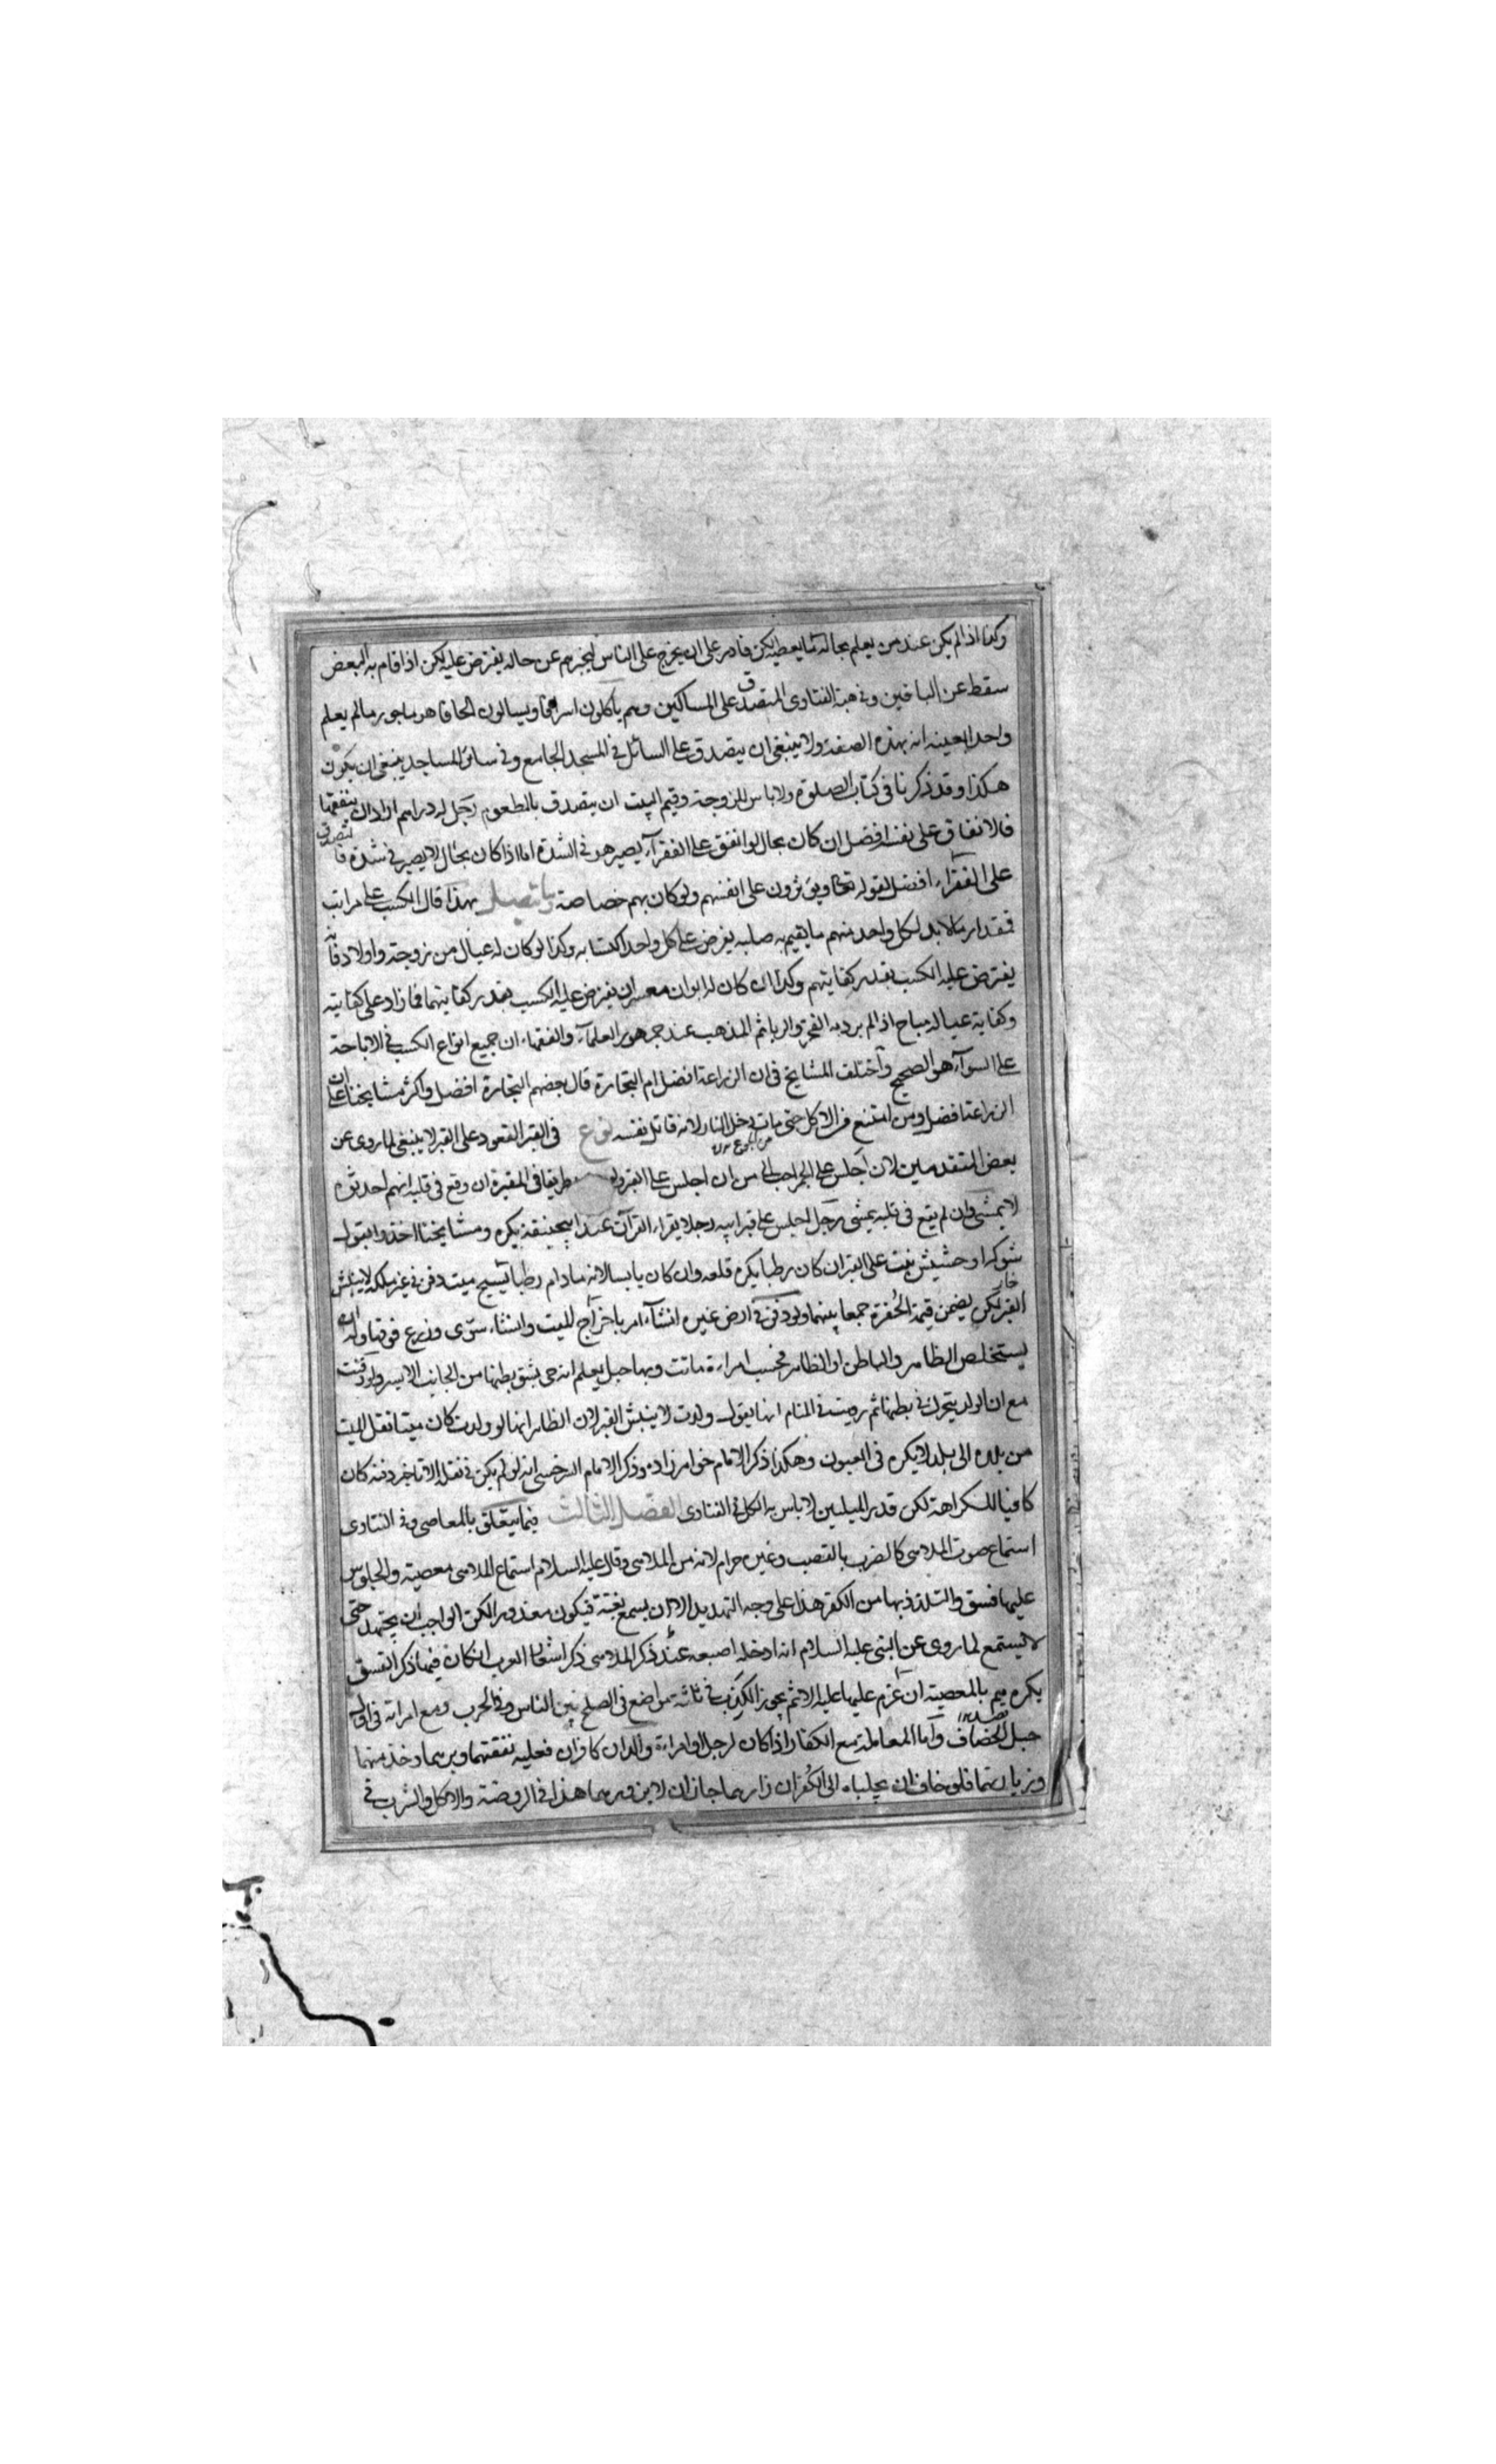 وكذا اذا لم يكن عند من يعلم بحاله ما يعطيه لكن قادر على ان يخرج على الناس ليخبرهم عن حاله يفترض عليه لكن اذا قام به البعض
سقط عن الباقين وفى هبة الفتاوى المتصدق على المساكين وهم ياكلون اسرافا ويسالون الحافا هو ماجور مالم يعلم
واحدا بعينه انه بهذه الصفة ولا ينبغى ان يتصدق على السائل فى المسجد الجامع وفى سائر المساجد ينبغى ان يكون
هكذا وقد ذكرنا فى كتاب الصلوة ولا باس للزوجة وقيم البيت ان يتصدق بالطعوم رجل له دراهم اراد ان ينفقها
فالانفاق على نفسه افضل ان كان بحال لو انفق على الفقرآء يصير هو فى الشدة اما اذا كان بحال لا يصير فى شدة فالتصدق
على الفقرآء افضل لقوله تعالى ويؤثرون على انفسهم ولو كان بهم خصاصة وما يتصل بهذا قال الكسب على مراتب
فمقدار ما لا بد لكل واحد منهم ما يقيم به صلبه يفرض على كل واحد اكتسابه وكذا لو كان له عيال من زوجة واولاد فانه
يفترض عليه الكسب بقدر كفايتهم وكذا ان كان له ابوان معسران يفترض عليه الكسب بقدر كفايتهما فما زاد على كفايته
وكفاية عياله مباح اذا لم يرد به الفخر والريا ثم المذهب عند جمهور العلمآء والفقهاء ان جميع انواع الكسب فى الاباحة
على السوآء هو الصحيح واختلف المشايخ فى ان الزراعة افضل ام التجارة قال بعضهم التجارة افضل واكثر مشايخنا على ان
الزراعة افضل ومن امتنع من الاكل حتى مات من الجوع يدخل النار لانه قاتل نفسه نوع فى القبر القعود على القبر لا ينبغى لما روى عن
بعض المتقدمين لان اجلس على الجمر احب الى من ان اجلس على القبر ولو طريقا فى المقبرة ان وقع فى قلبه انهم احدثوه
لا يمشى وان لم يقع فى قلبه يمشى رجل اجلس على قبر ابيه رجلا يقراء القرآن عند ابى حنيفة يكره ومشايخنا اخذوا بقول
شوك او حشيش نبت على القبر ان كان رطبا يكره قلعه وان كان يابسا لا لانه مادام رطبا يسبح ميت دفن فى غير ملكه لا ينبش
القبر لكن يضمن قيمة الحفرة جمعا بينهما ولو دفن فى ارض غيره ان شآء امر باخراج الميت وان شاء سوى وزرع فوقها وله ان
يستخلص الظاهر والباطن او الظاهر فحسب امراءة ماتت وبها حبل يعلم انه حى يشق بطنها من الجانب الايسر ولو دفنت
مع ان الولد يتحرك فى بطنها ثم رويت فى المنام انها يقول ولدت لا ينبش القبر لان الظاهر انها لو ولدت كان ميتا نقل الميت
من بلده الى بلد لا يكره فى العيون وهكذا ذكر الامام خواهرزاده وذكر الامام السرخسى انه لو لم يكن فى نقله الا تاخير دفنه كان
كافيا للكراهة لكن قدر الميلين لا باس به الكل فى الفتاوى الفصل الثالث فيما يتعلق بالمعاصى وفى الفتاوى
استماع صوت الملاهى كالضرب بالقصب وغيره حرام لانه من الملاهى وقال عليه السلام استماع الملاهى معصية والجلوس
عليها فسق والتلذذ بها من الكفر هذا على وجه التهديد الا ان يسمع بغتة فيكون معذورا لكن الواجب ان يجتهد حتى
لا يستمع لما روى عن النبى عليه السلام انه ادخله اصبعه عند ذكر الملاهى ذكر اشعار العرب ان كان فيما ذكر الفسق
يكره هم بالمعصية ان عزم عليها عليه الاثم يجوز الكذب فى ثلثة مواضع فى الصلح بين الناس وفى الحرب ومع امراته فى اول
حبل الخصاف واما المعاملة مع الكفار اذا كان لرجل او امراءة والدان كافران فعليه نفقتهما وبرهما وخدمتهما
وزيارتهما فلو خاف ان يجلباه الى الكفر ان زارهما جاز ان لا يزورهما هذا فى الروضة والاكل والشرب فى